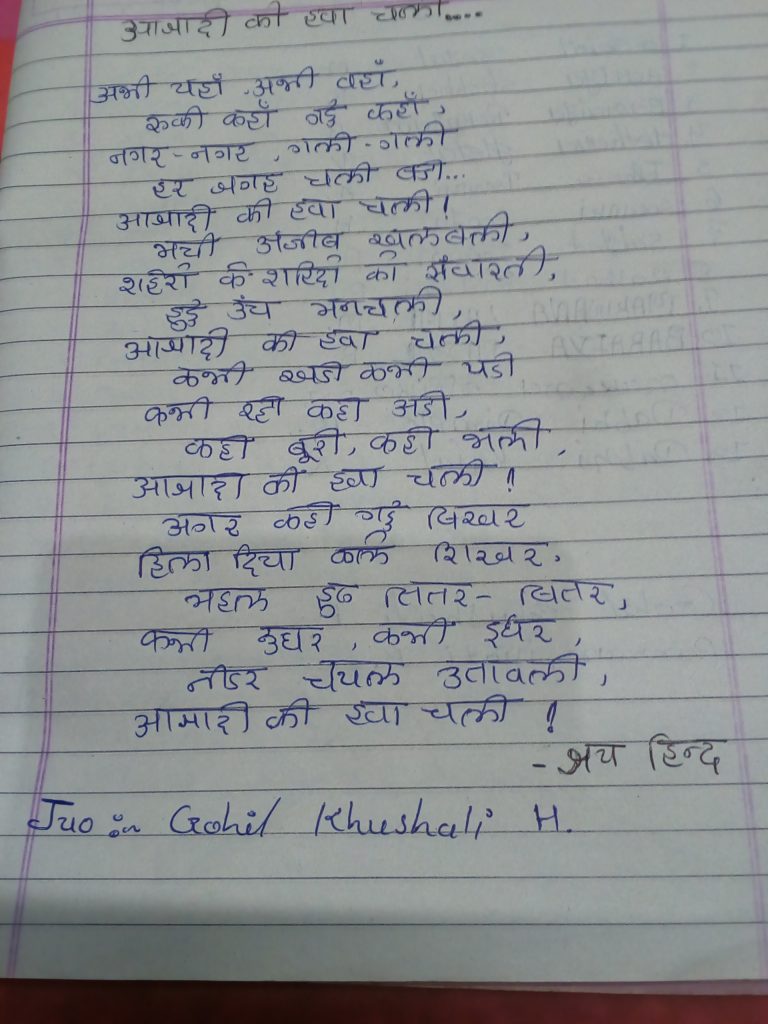 आजादी की हवा चली....
अभी यहाँ, अभी वहाँ,
रुकी कहाँ गई कहाँ,
नगर-नगर, गली-गली
हर जगह चली बडी...
आजादी की हवा चली!
मची अजीब खलबली,
शहरों के शहिदों को सँवारती,
हुई उंच मनचली,
आजादी की हवा चली,
कभी खडी कभी पडी
कभी रही कहा अडी,
कही बूरी, कही भली,
आजादी की हवा चली!
अगर कही गई बिखर
हिला दिया शिखर,
महल हुए तितर-बितर,
कभी उधर, कभी इधर,
नीडर चंचल उतावली,
आजादी की हवा चली!
-जय हिन्द
Gohil Khushali H.